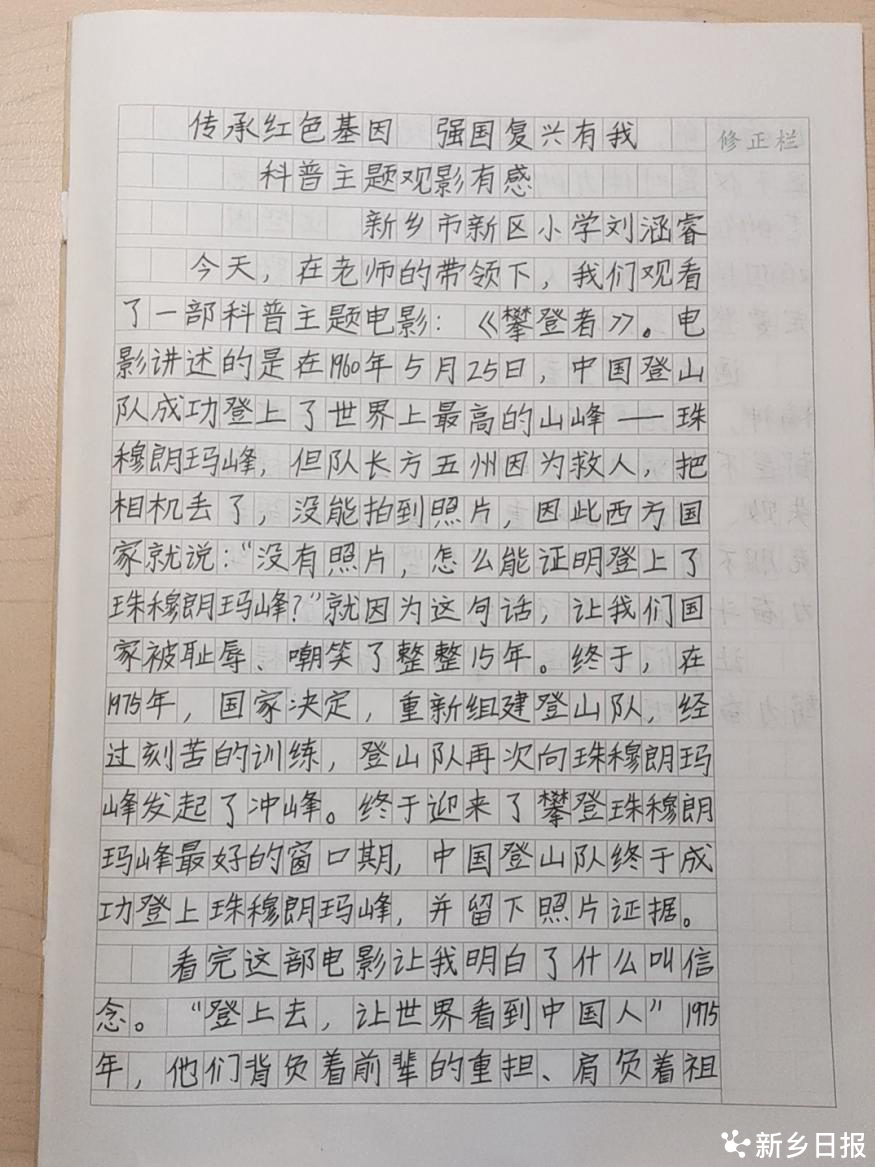 传承红色基因 强国复兴有我
修正栏
科普主题观影有感
新乡市新区小学刘涵睿
今天，在老师的带领下，我们观看
了一部科普主题电影：《攀登者》。电
影讲述的是在1960年5月25日，中国登山
队成功登上了世界上最高的山峰——珠
穆朗玛峰，但队长方五州因为救人，把
相机丢了，没能拍到照片，因此西方国
家就说：“没有照片，怎么能证明登上了
珠穆朗玛峰？”就因为这句话，让我们国
家被耻辱、嘲笑了整整15年。终于，在
1975年，国家决定，重新组建登山队，经
过刻苦的训练，登山队再次向珠穆朗玛
峰发起了冲峰。终于迎来了攀登珠穆朗
玛峰最好的窗口期，中国登山队终于成
功登上珠穆朗玛峰，并留下照片证据。
看完这部电影让我明白了什么叫信
念。“登上去，让世界看到中国人”1975
年，他们背负着前辈的重担、肩负着祖
新乡日报